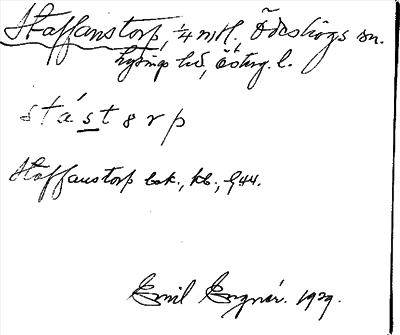 Staffanstorp, 1/4 mtl. Ödeshögs sn.
Lysings hd, Österg. l.
stá́sterp
Staffanstorp bsk., kb., G44.
Emil Engnér. 1929.